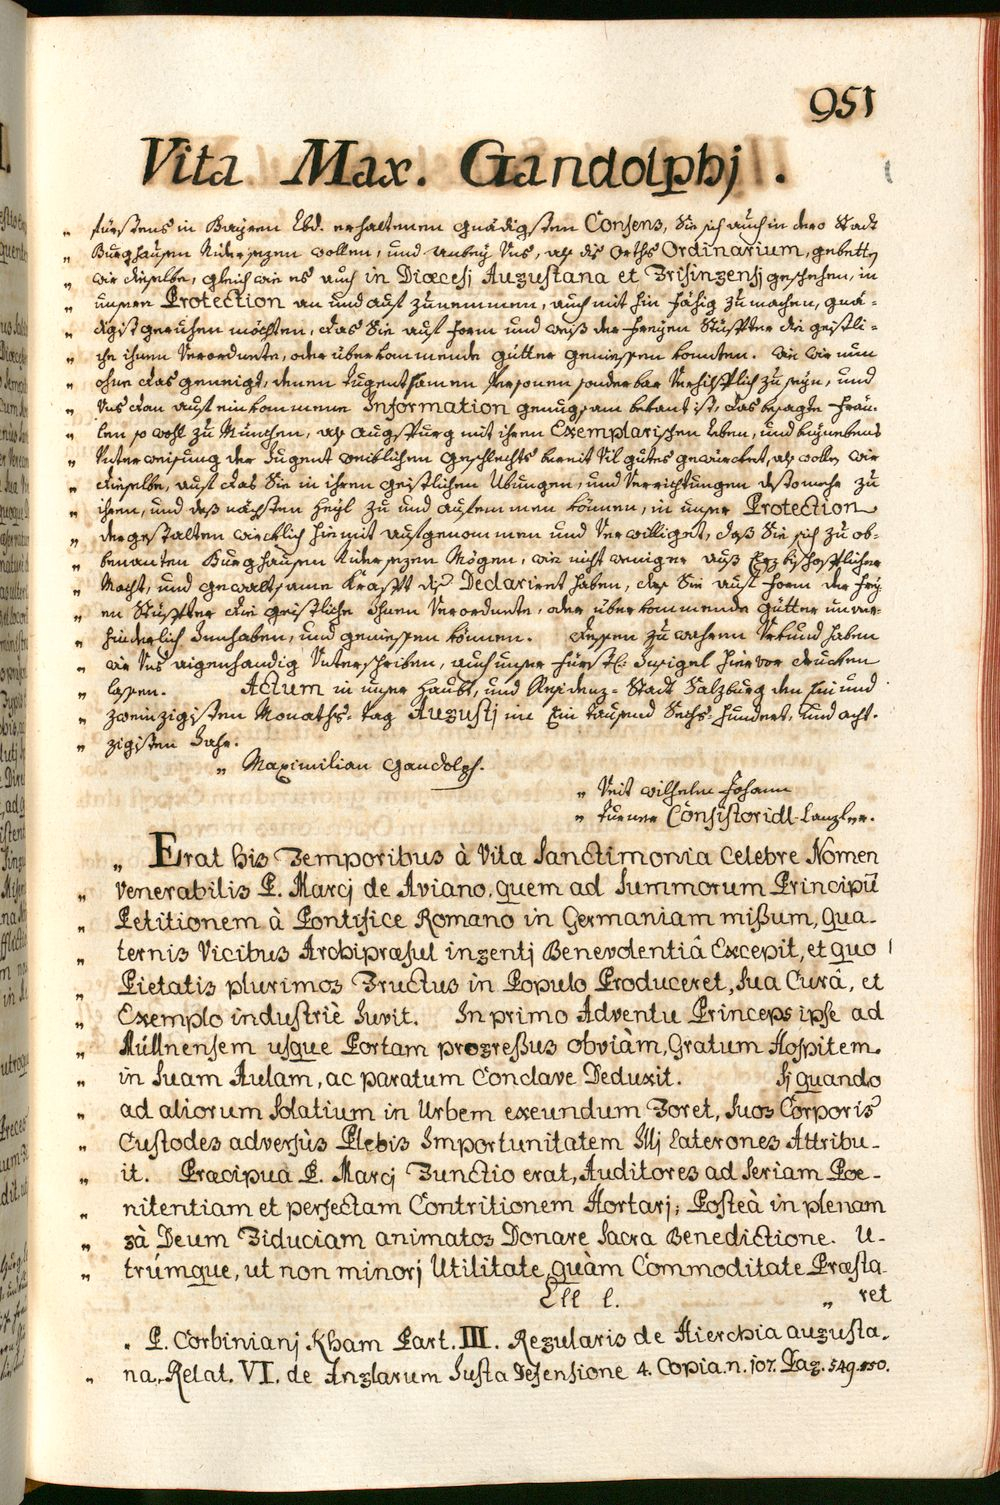 951
Vita Max. Gandolphj.
„ fürstens in Bayren Lbd. erhaltenem gnädigsten Consens, Sie sich auch in dero Statt
„ Burghausen Nidersezen wollen, und anbey Uns, als diß Orths Ordinarium, gebetten
„ wir dieselbe, gleich wie es auch in Diœcesj Augustana et Frisingensj geschehen, in
„ unsere Protection an und auf zunemmen, auch mit hin fähig zu machen, gnä-
„ digist geruhen möchten, das Sie auf Form und weiß der Freyen Stüffter die geistli-
„ che ihnen Verordnete, oder überkommende gütter geniessen konten. Wie wir nun
„ ohne das geneigt, denen tugentsamen Persohnen sonderbar zu seyn, und
„ Uns dan auß einkommene Information genugsam bekant ist, das besagte Freü-
„ len so wohl zu München, als Augspurg mit ihren Exemplarischen Leben, und beynebens
„ Unterweisung der Jugent weiblichen geschlechts bereit Vil gutes gewürcket, als wollen wir
„ dieselbe, auf das Sie in ihren geistlichen Übungen, und Verrichtungen desto mehr zu
„ ihren, und deß nächsten Heyl zu und aufnemmen können, in unser Protection
„ dergestalten würcklich hiemit aufgenommen und Verwilliget, daß Sie sich zu ob-
„ benanten Burghausen Nidersezen Mögen, wie nicht weniger auß Erzbischofflicher
„ Macht, und gewaltsame Krafft diß Declariret haben, das Sie auf Form der Frey
„ en Stüffter die geistliche ihnen Verordnete, oder überkommende gütter unver-
„ hinderlich Innhaben, und geniessen können. Dessen zu wahrem Urkund haben
„ wir Uns aigenhandig Unterschriben, auch unser Fürstl: Insigel hiervor drucken
„ lassen. Actum in unser Haubt, und Residenz-Statt Salzburg den Ein und
„ zweinzigisten Monaths-tag Augustj im Ein tausend Sechs-Hundert, und acht-
„ zigisten Jahr.
„ Maximilian Gandolph.
„ Veit Wilhelm Johann
„ Turner Consistorial-Canzler.
„ Erat his Temporibus à Vita Sanctimonia Celebre Nomen
„ Venerabilis P. Marcj de Aviano, quem ad Summorum Principū
„ Petitionem à Pontifice Romano in Germaniam mißum, qua-
„ ternis Vicibus Archipræsul ingentj Benevolentiâ Excepit, et quo
„ Pietatis plurimos Fructus in Populo Produceret, Sua Curâ, et
„ Exemplo industriè Iuvit. In primo Adventu Princeps ipse ad
„ Müllnensem usque Portam progreßus obviàm, Gratum Hospitem
„ in Suam Aulam, ac paratum Conclave Deduxit. Sj quando
„ ad aliorum Solatium in Urbem exeundum Foret, Suos Corporis
„ Custodes adversùs Plebis Importunitatem Illj Laterones Attribu-
„ it. Præcipua P. Marcj Functio erat, Auditores ad Seriam Pœ-
„ nitentiam et perfectam Contritionem Hortarj; Posteà in plenam
„ sà Deum Fiduciam animatos Donare Sacra Benedictione. U-
„ trúmque, ut non minorj Utilitate, quàm Commoditate Præsta-
Ell l. „ ret
„ P. Corbinianj Kham Part. III. Regularis de Hierchia augusta-
„ na, Relat. VI. de Anglarum Iusta Defensione 4. Copia. n. 107. Pag. 549. 550.